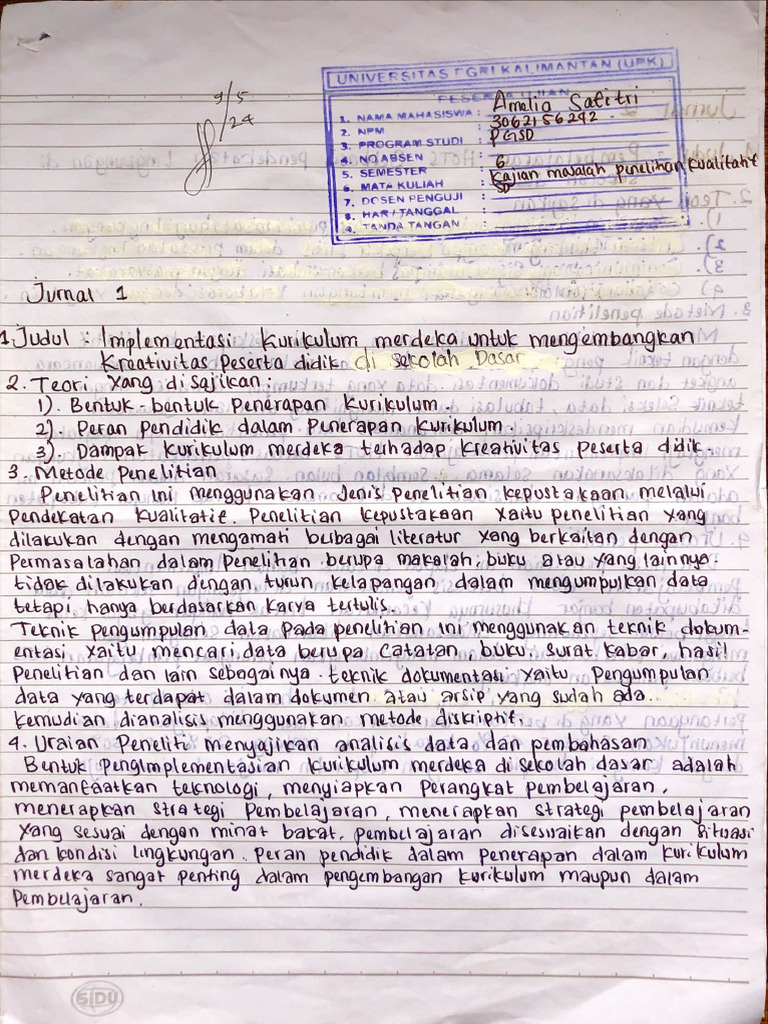 9/5
/24
UNIVERSITAS PGRI KALIMANTAN (UPK)
PESERTA UJIAN
1. NAMA MAHASISWA : Amelia Safitri
2. NPM : 3062156242
3. PROGRAM STUDI : PGSD
4. NO ABSEN : 6
5. SEMESTER :
6. MATA KULIAH : Kajian masalah penelitian kualitatif SD
7. DOSEN PENGUJI :
8. HARI / TANGGAL :
9. TANDA TANGAN :
Jurnal 1
1. Judul : Implementasi Kurikulum merdeka untuk mengembangkan
Kreativitas Peserta didik di sekolah Dasar
2. Teori yang disajikan :
1). Bentuk-bentuk Penerapan Kurikulum.
2). Peran Pendidik dalam Penerapan Kurikulum.
3). Dampak Kurikulum merdeka terhadap Kreativitas Peserta didik.
3. Metode Penelitian
Penelitian ini menggunakan Jenis Penelitian kepustakaan melalui
Pendekatan Kualitatif. Penelitian kepustakaan yaitu penelitian yang
dilakukan dengan mengamati berbagai literatur yang berkaitan dengan
Permasalahan dalam Penelitian berupa makalah, buku atau yang lainnya.
tidak dilakukan dengan turun kelapangan dalam mengumpulkan data
tetapi hanya berdasarkan karya tertulis.
Teknik pengumpulan data Pada penelitian ini menggunakan teknik dokum-
entasi yaitu mencari data berupa Catatan, buku, surat kabar, hasil
Penelitian dan lain sebagainya. teknik dokumentasi yaitu Pengumpulan
data yang terdapat dalam dokumen atau arsip yang sudah ada.
kemudian dianalisis menggunakan metode diskriptif.
4. Uraian Peneliti menyajikan analisis data dan pembahasan
Bentuk Pengimplementasian Kurikulum merdeka di sekolah dasar adalah
memanfaatkan teknologi, menyiapkan Perangkat pembelajaran,
menerapkan strategi Pembelajaran, menerapkan strategi pembelajaran
yang sesuai dengan minat bakat, pembelajaran disesuaikan dengan situasi
dan kondisi lingkungan. Peran pendidik dalam penerapan dalam kurikulum
merdeka sangat penting dalam pengembangan kurikulum maupun dalam
Pembelajaran.
SIDU